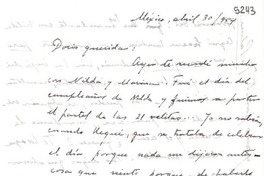 5243
México, abril 30/954
Doris querida:
Ayer te mucho
con Nilda y Mariana. Fui el día del
cumpleaños de Nilda y fuimos a partir
el pastel de las 21 velitas. Yo no sabía,
cuando llegué, que se trataba de celebrar
el día, porque nada me dijeron antes,
cosa que siento porque de haberlo